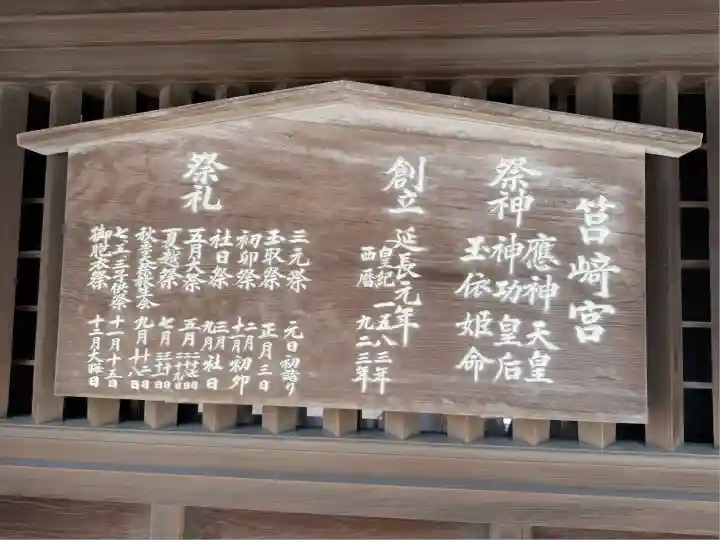 筥崎宮
祭神
應神天皇
神功皇后
玉依姫命
創立
延長元年
皇紀 一五八三年
西暦 九二三年
祭礼
三元祭 元日初詣り
玉取祭 正月三日
初卯祭 二月十一月初卯
社日祭 三月九月社日
五月大祭 五月
夏越祭 七月
秋季大祭放生会 九月
七五三子供祭 十一月十五日
御胞衣祭 十二月大晦日